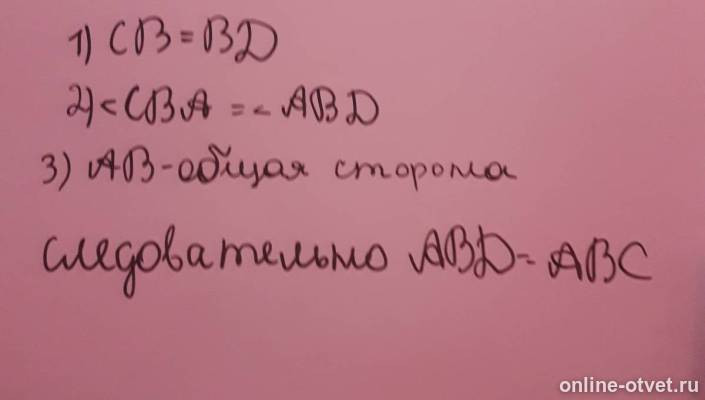 1) CB = BD
2) < CBA = < ABD
3) AB - общая сторона
следовательно ABD = ABC
online-otvet.ru